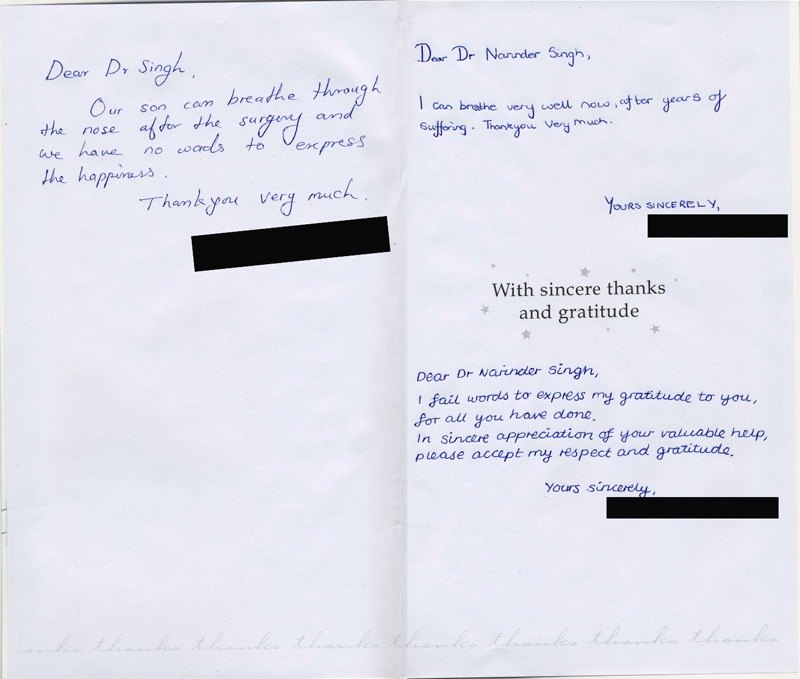 Dear Dr Singh,
Our son can breathe through
the nose after the surgery and
we have no words to express
the happiness.
Thankyou very much.
Dear Dr Narinder Singh,
I can breathe very well now, after years of
suffering. Thankyou very much.
YOURS SINCERELY,
With sincere thanks
and gratitude
Dear Dr Narinder Singh,
I fail words to express my gratitude to you,
for all you have done.
In sincere appreciation of your valuable help,
please accept my respect and gratitude.
Yours sincerely,
thanks thanks thanks thanks thanks thanks thanks thanks